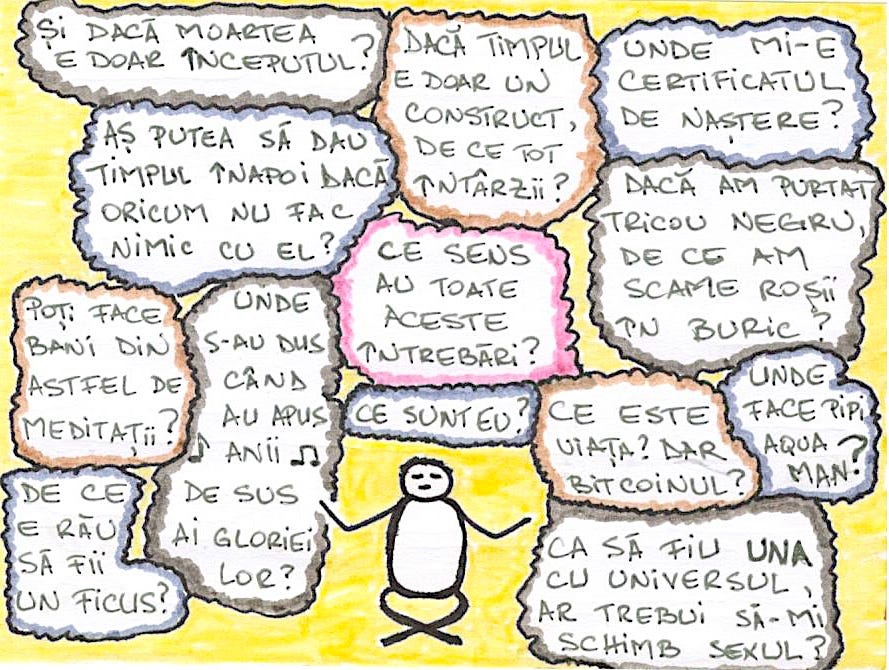 ȘI DACĂ MOARTEA
E DOAR ÎNCEPUTUL?
DACĂ TIMPUL
E DOAR UN
CONSTRUCT,
DE CE TOT
ÎNTÂRZII?
UNDE MI-E
CERTIFICATUL
DE NAȘTERE?
AȘ PUTEA SĂ DAU
TIMPUL ÎNAPOI DACĂ
ORICUM NU FAC
NIMIC CU EL?
DACĂ AM PURTAT
TRICOU NEGRU,
DE CE AM
SCAME ROȘII
ÎN BURIC?
CE SENS
AU TOATE
ACESTE
ÎNTREBĂRI?
POȚI FACE
BANI DIN
ASTFEL DE
MEDITAȚII?
UNDE
S-AU DUS
CÂND
AU APUS
♪ ANII ♫
DE SUS
AI GLORIEI
LOR?
CE SUNT EU?
CE ESTE
VIAȚA? DAR
BITCOINUL?
UNDE
FACE PIPI
AQUA
MAN?
DE CE
E RĂU
SĂ FII
UN FICUS?
CA SĂ FIU UNA
CU UNIVERSUL,
AR TREBUI SĂ-MI
SCHIMB SEXUL?